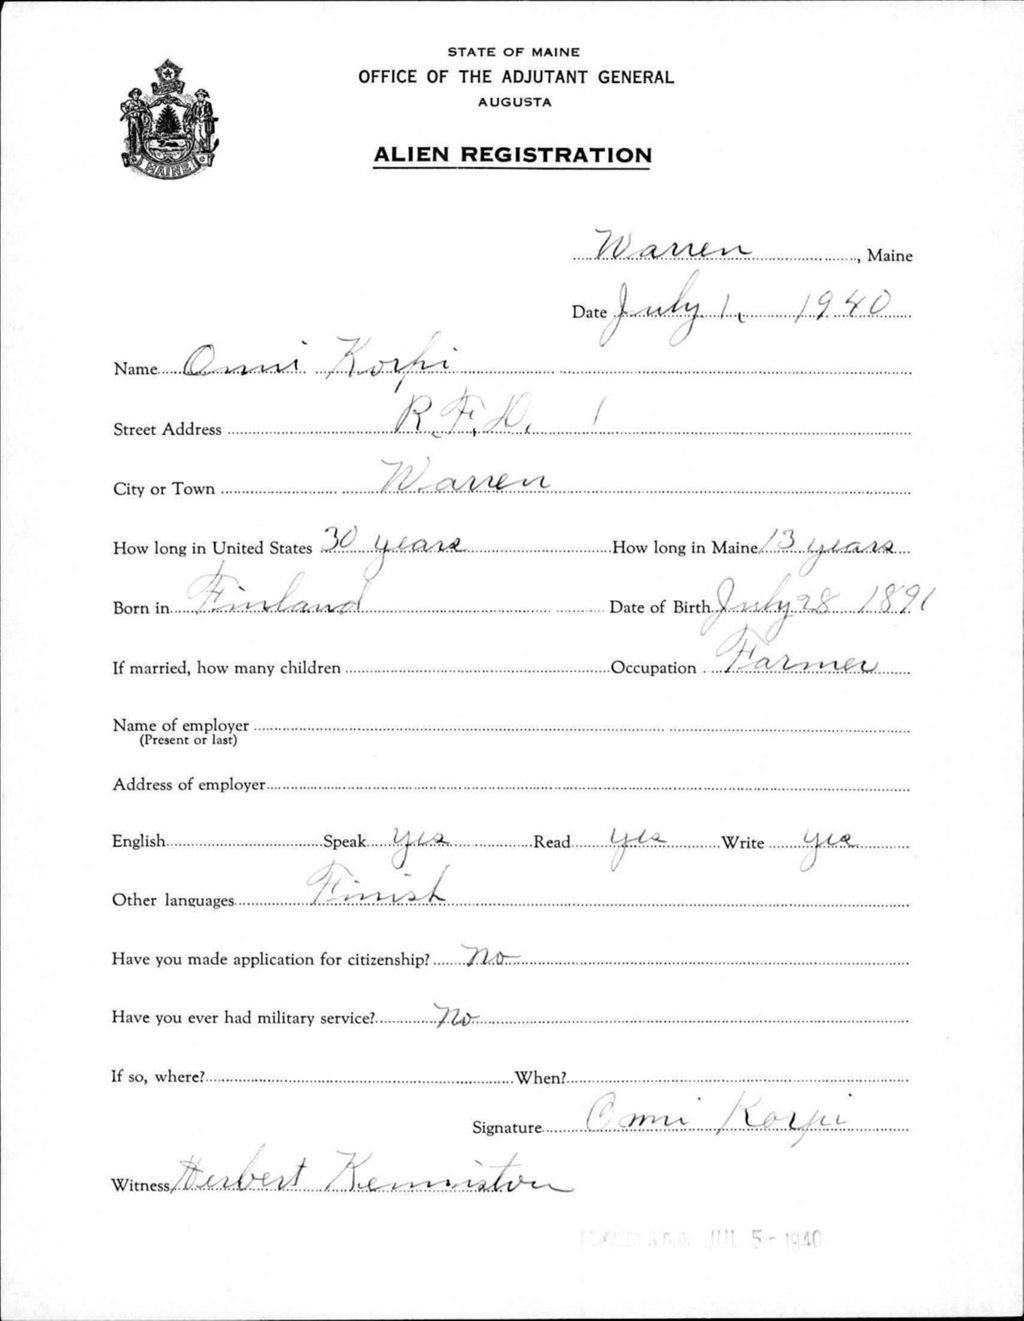 STATE OF MAINE
OFFICE OF THE ADJUTANT GENERAL
AUGUSTA
ALIEN REGISTRATION
MAINE
Warren, Maine
Date July 1, 1940
Name Onni Korpi
Street Address R.F.D. 1
City or Town Warren
How long in United States 30 years How long in Maine 13 years
Born in Finland Date of Birth July 28 1891
If married, how many children Occupation Farmer
Name of employer
(Present or last)
Address of employer
English Speak yes Read yes Write yes
Other languages Finish
Have you made application for citizenship? No
Have you ever had military service? No
If so, where? When?
Signature Onni Korpi
Witness Herbert Kenniston
JUL 5 - 1940